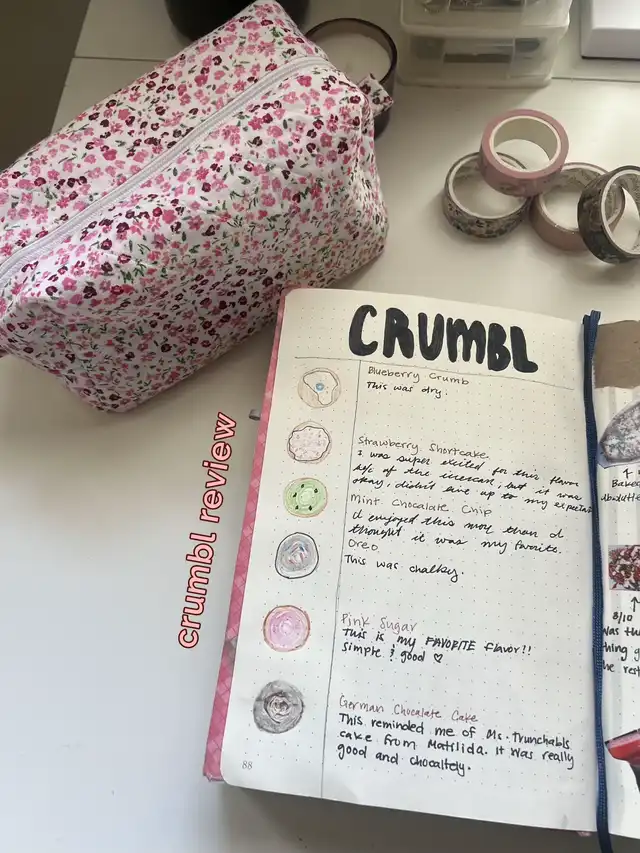 CRUMBL
Blueberry Crumb
This was dry.
Strawberry Shortcake
I was super excited for this flavor
b/c of the icecream, but it was
okay, didn't live up to my expectat
Mint Chocolate Chip
I enjoyed this more than I
thought it was my favorite.
Oreo
This was chalky.
Pink Sugar
This is my FAVORITE flavor!!
Simple & good ♡
German Chocolate Cake
This reminded me of Ms. Trunchables
cake from Matilida. It was really
good and chocaltely.
88
crumbl review
Baked
absolute
8/10
Was th
thing g
he rest